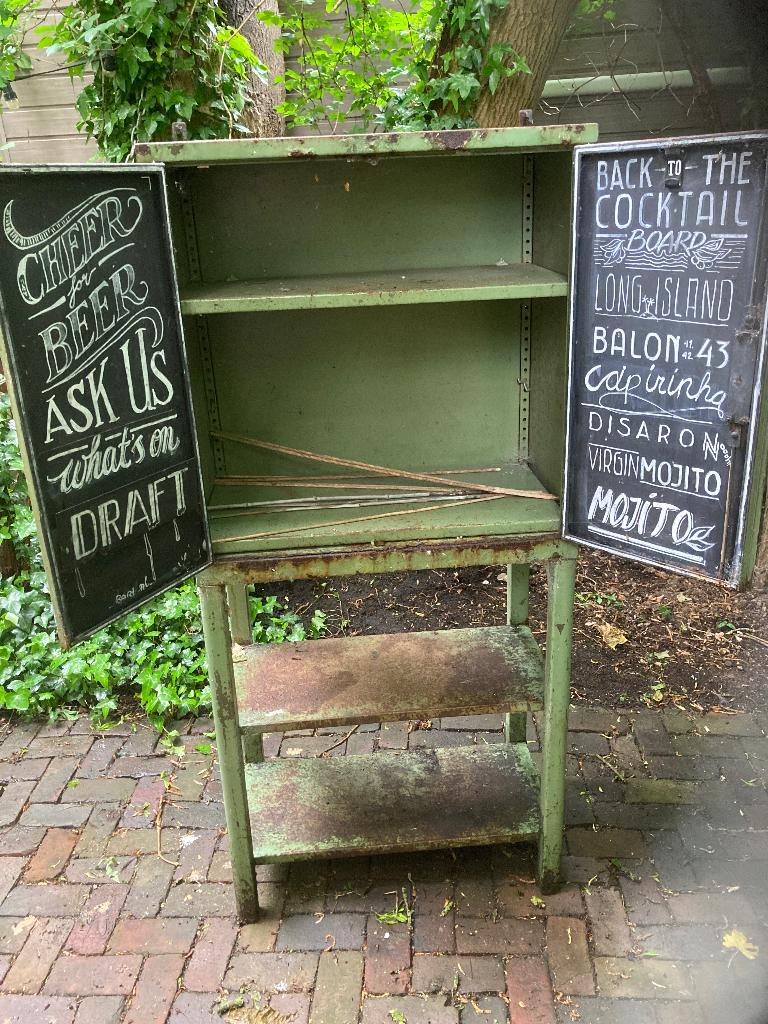 CHEER
for
BEER
ASK US
what's on
DRAFT
BACK TO THE
COCKTAIL
BOARD
LONG ISLAND
BALON 41 42 43
Caipirinha
DISARON
VIRGIN MOJITO
MOJITO